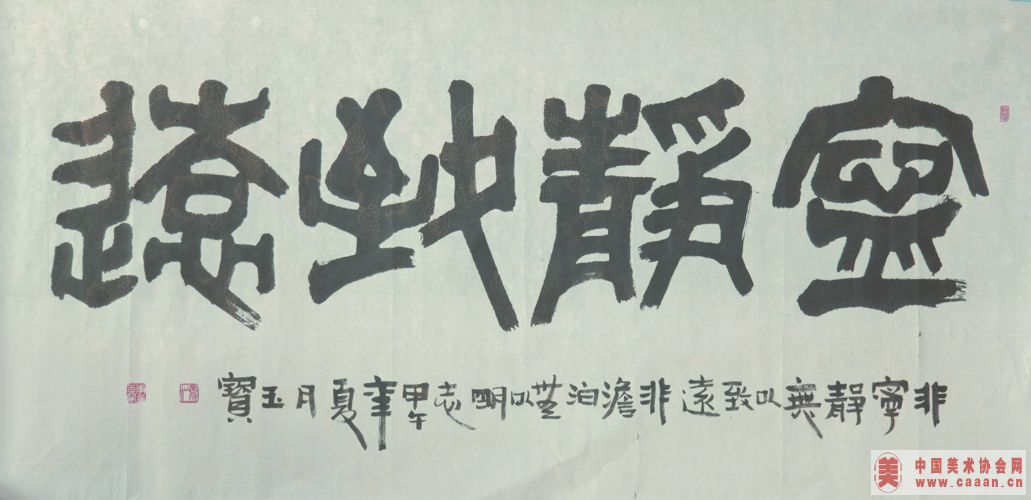 寧靜致遠
非寧靜無以致遠非澹泊無以明志甲午年夏月玉寶
中国美术协会网
www.caaan.cn